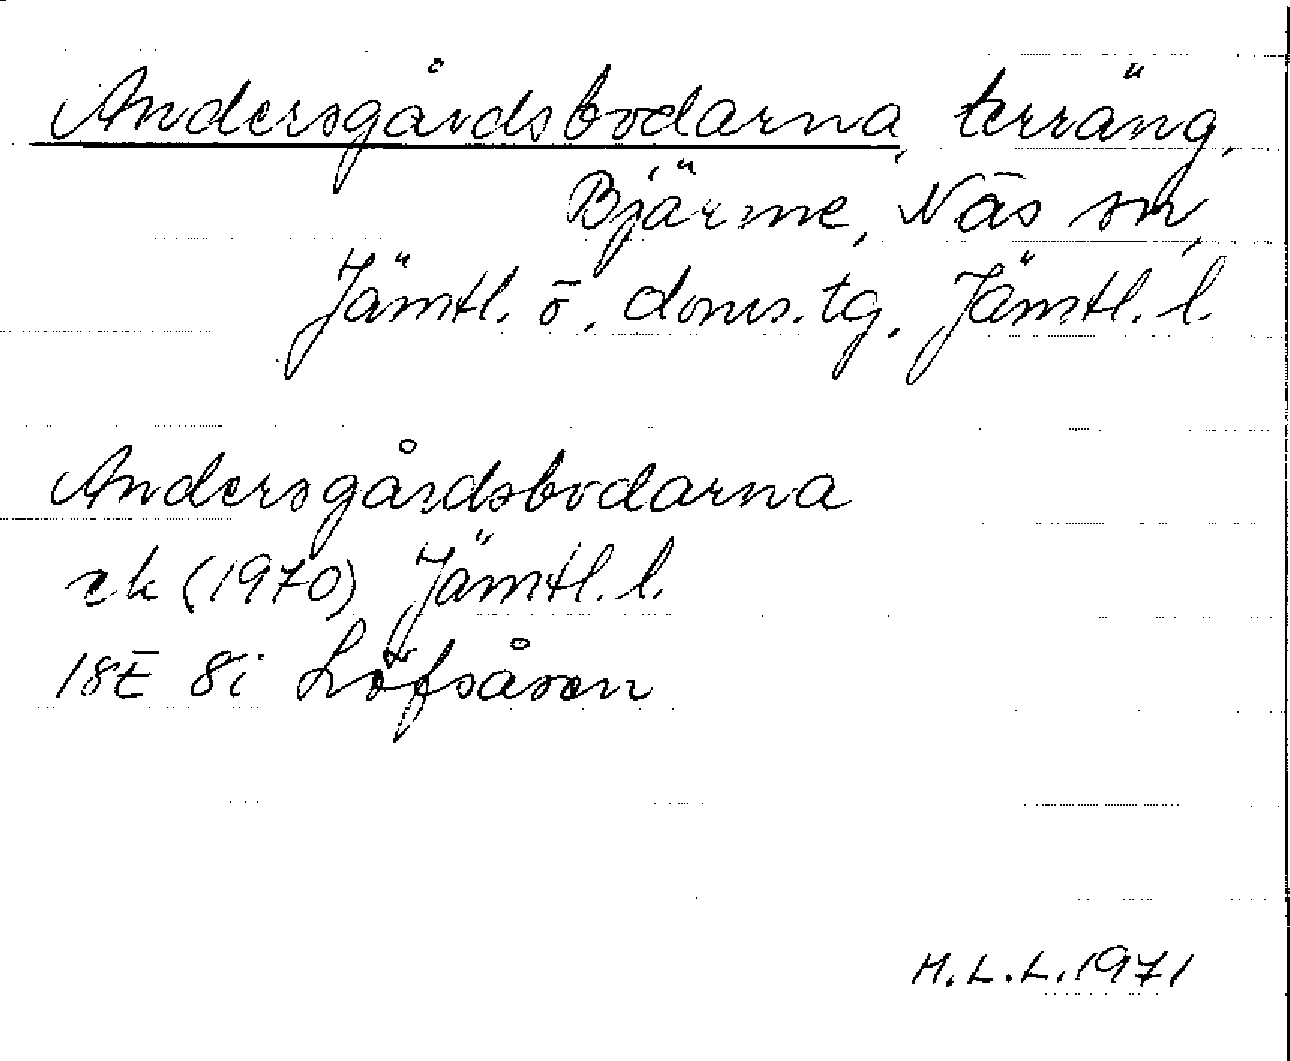 Andersgårdsbodarna, terräng,
Bjärme, Näs sn,
Jämtl. ö. doms.tg. Jämtl. l.
Andersgårdsbodarna
ek (1970) Jämtl. l.
18E 8i Löfsåsen
H.L.L. 1971